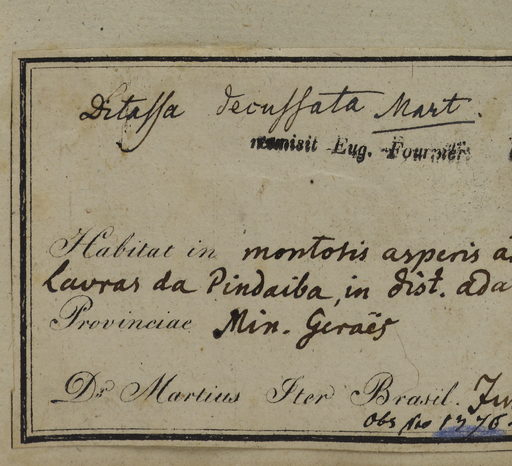 Ditassa decussata Mart.
remisit Eug. Fournier
Habitat in montosis asperis a
Lavras da Pindaiba, in dist. ada
Provinciae Min. Geraës
Dr. Martius Iter Brasil. Ju
Obs No 1376